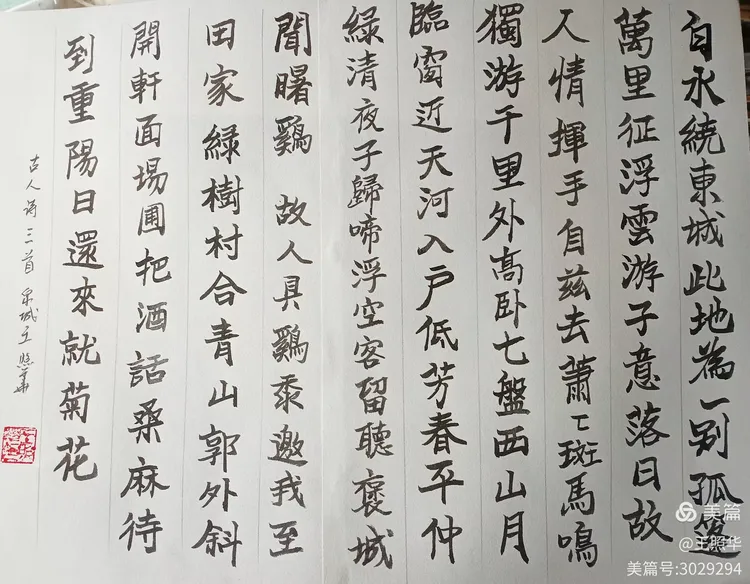 白水繞東城此地為一别孤篷
萬里征浮雲游子意落日故
人情揮手自茲去蕭〻斑馬鳴
獨游千里外高卧七盤西山月
臨窗近天河入户低芳春平仲
綠清夜子歸啼浮空客留聽褒城
聞曙鷄 故人具鷄黍邀我至
田家綠樹村合青山郭外斜
開軒面場圃把酒話桑麻待
到重陽日還來就菊花
古人詩三首 泉城王照華
美篇
@王照华
美篇号:3029294